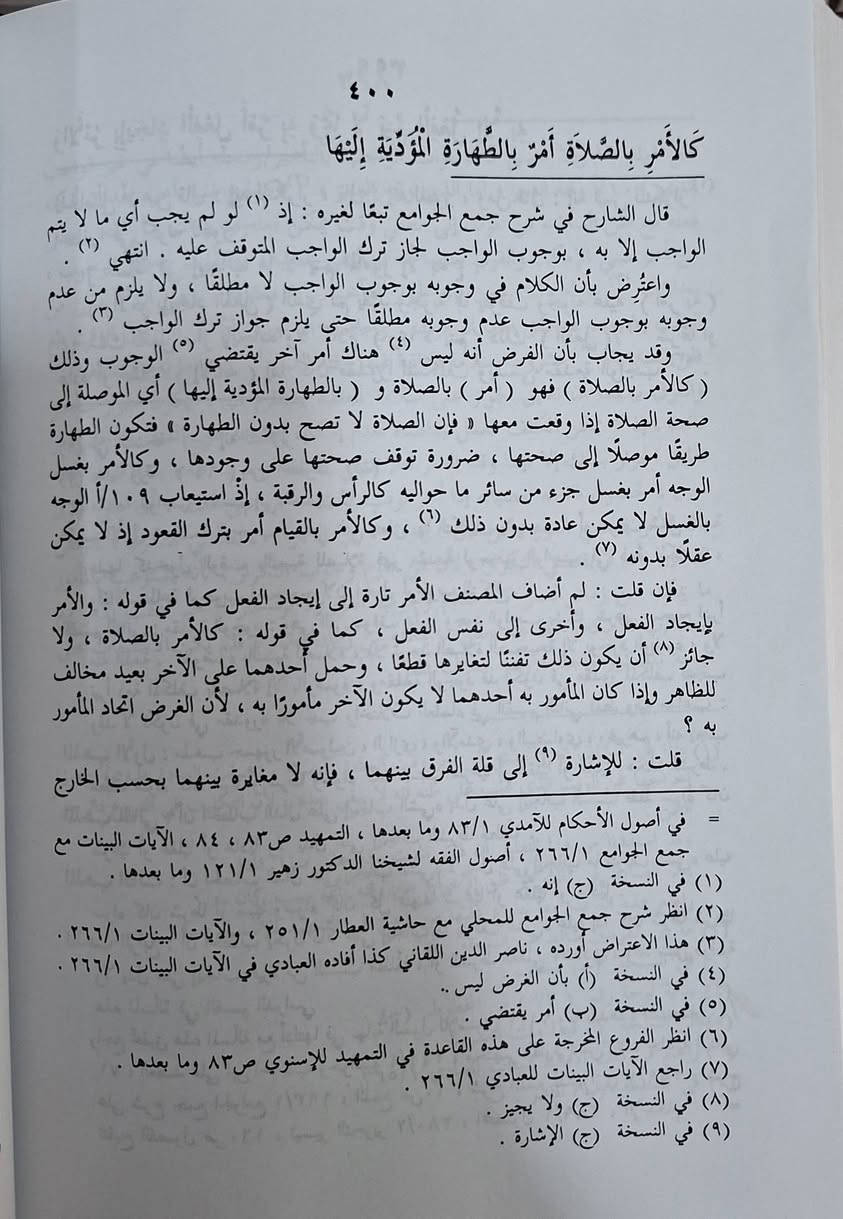 ٤٠٠
كَالأَمْرِ بِالصَّلاَةِ أَمْرٌ بِالطَّهَارَةِ الْمُؤَدِّيَةِ إِلَيْهَا
قال الشارح في شرح جمع الجوامع تبعًا لغيره : إذ (١) لو لم يجب أي ما لا يتم
الواجب إلا به ، بوجوب الواجب لجاز ترك الواجب المتوقف عليه . انتهي (٢) .
واعتُرِض بأن الكلام في وجوبه بوجوب الواجب لا مطلقًا ، ولا يلزم من عدم
وجوبه بوجوب الواجب عدم وجوبه مطلقًا حتى يلزم جواز ترك الواجب (٣) .
وقد يجاب بأن الفرض أنه ليس (٤) هناك أمر آخر يقتضي (٥) الوجوب وذلك
( كالأمر بالصلاة ) فهو ( أمر ) بالصلاة و ( بالطهارة المؤدية إليها ) أي الموصلة إلى
صحة الصلاة إذا وقعت معها « فإن الصلاة لا تصح بدون الطهارة » فتكون الطهارة
طريقًا موصلًا إلى صحتها ، ضرورة توقف صحتها على وجودها ، وكالأمر بغسل
الوجه أمر بغسل جزء من سائر ما حواليه كالرأس والرقبة ، إذْ استيعاب ١٠٩/أ الوجه
بالغسل لا يمكن عادة بدون ذلك (٦) ، وكالأمر بالقيام أمر بترك القعود إذ لا يمكن
عقلًا بدونه (٧) .
فإن قلت : لم أضاف المصنف الأمر تارة إلى إيجاد الفعل كما في قوله : والأمر
بإيجاد الفعل ، وأخرى إلى نفس الفعل ، كما في قوله : كالأمر بالصلاة ، ولا
جائز (٨) أن يكون ذلك تفننًا لتغايرها قطعًا ، وحمل أحدهما على الآخر بعيد مخالف
للظاهر وإذا كان المأمور به أحدهما لا يكون الآخر مأمورًا به ، لأن الغرض اتحاد المأمور
به ؟
قلت : للإشارة (٩) إلى قلة الفرق بينهما ، فإنه لا مغايرة بينهما بحسب الخارج
= في أصول الأحكام للآمدي ٨٣/١ وما بعدها ، التمهيد ص٨٣ ، ٨٤ ، الآيات البينات مع
جمع الجوامع ٢٦٦/١ ، أصول الفقه لشيخنا الدكتور زهير ١٢١/١ وما بعدها .
(١) في النسخة (ج) إنه .
(٢) انظر شرح جمع الجوامع للمحلي مع حاشية العطار ٢٥١/١ ، والآيات البينات ٢٦٦/١ .
(٣) هذا الاعتراض أورده ، ناصر الدين اللقاني كذا أفاده العبادي في الآيات البينات ٢٦٦/١ .
(٤) في النسخة (أ) بأن الغرض ليس .
(٥) في النسخة (ب) أمر يقتضي .
(٦) انظر الفروع المخرجة على هذه القاعدة في التمهيد للإسنوي ص٨٣ وما بعدها .
(٧) راجع الآيات البينات للعبادي ٢٦٦/١ .
(٨) في النسخة (ج) ولا يجيز .
(٩) في النسخة (ج) الإشارة .